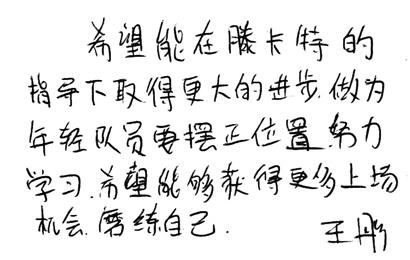 希望能在滕卡特的
指导下取得更大的进步.做为
年轻队员要摆正位置.努力
学习.希望能够获得更多上场
机会.磨练自己.
王彤